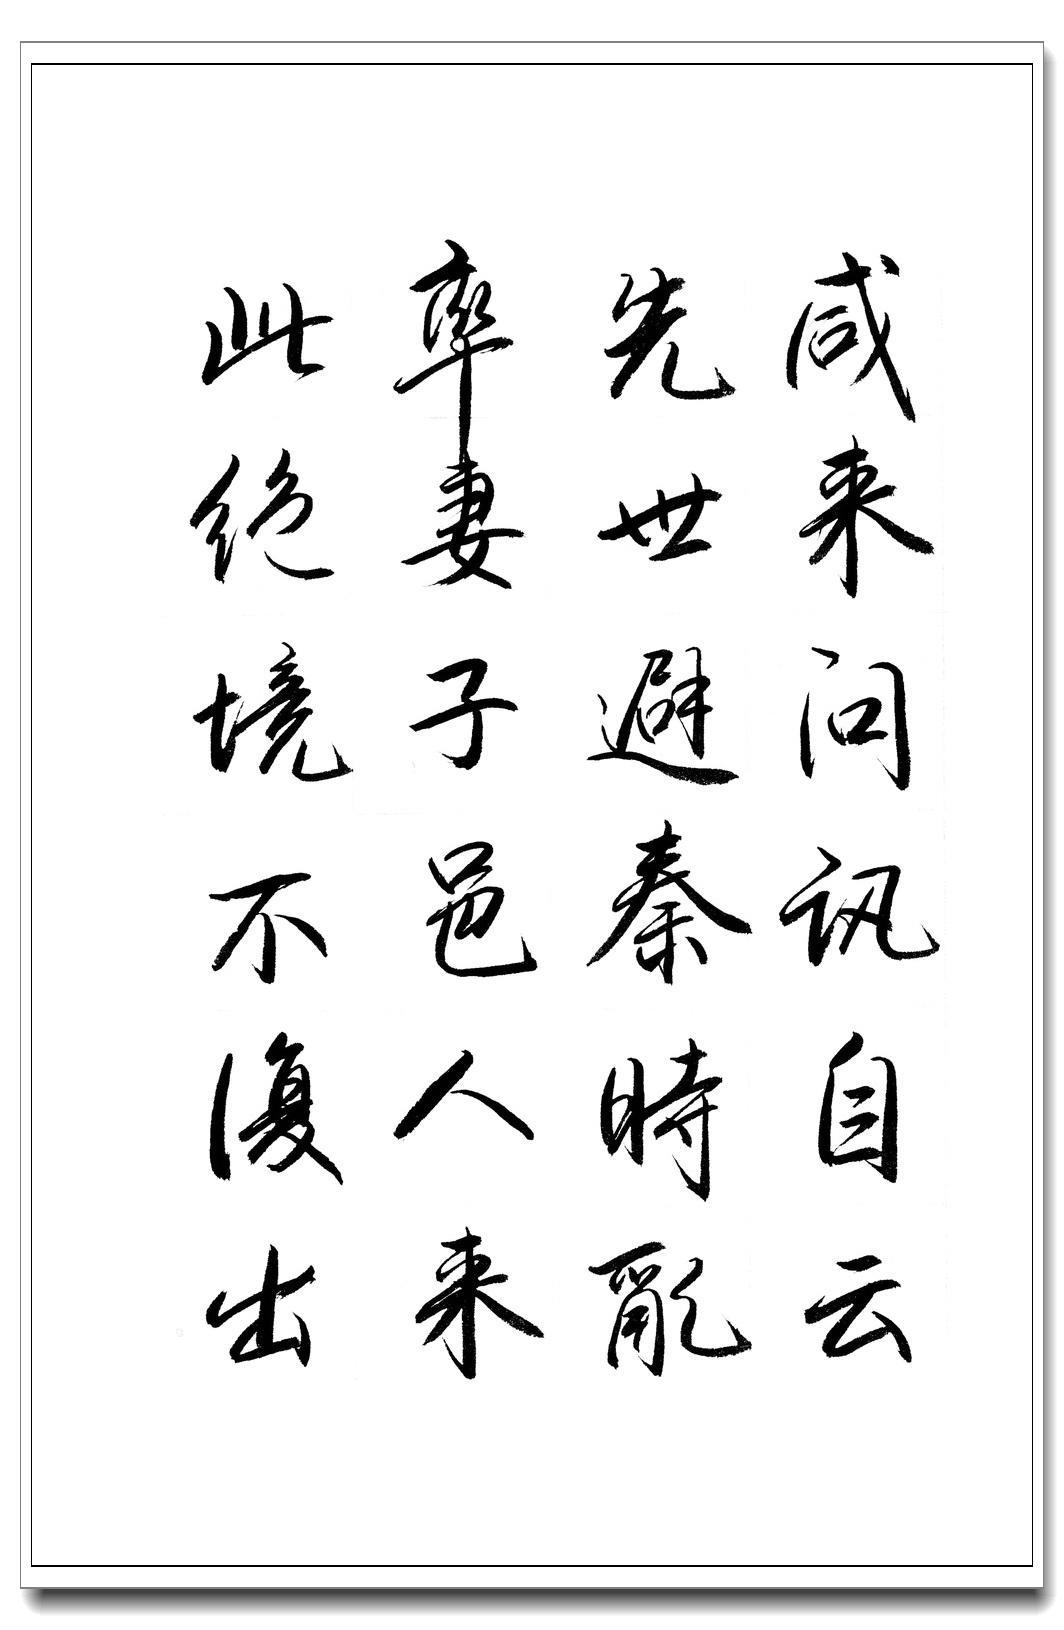 咸来问訊自云
先世避秦時亂
率妻子邑人来
此絶境不復出